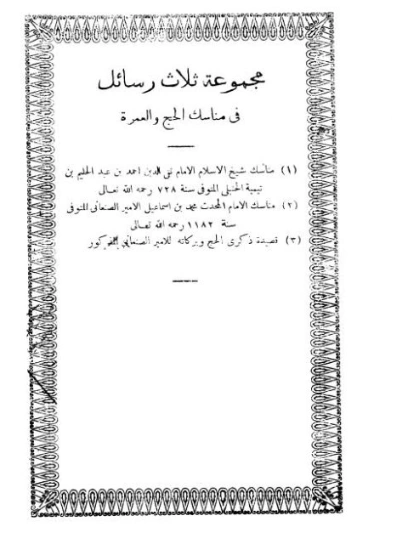 مجموعة ثلاث رسائل
فى مناسك الحج والعمرة
(١) مناسك شيخ الاسلام الامام تقي الدين احمد بن عبد الحليم بن
تيمية الحنبلي المتوفى سنة ٧٢٨ رحمه الله تعالى
(٢) مناسك الامام المحدث محمد بن اسماعيل الامير الصنعانى المتوفى
سنة ١١٨٢ رحمه الله تعالى
(٣) قصيدة ذكرى الحج وبركاته للامير الصنعاني المذكور